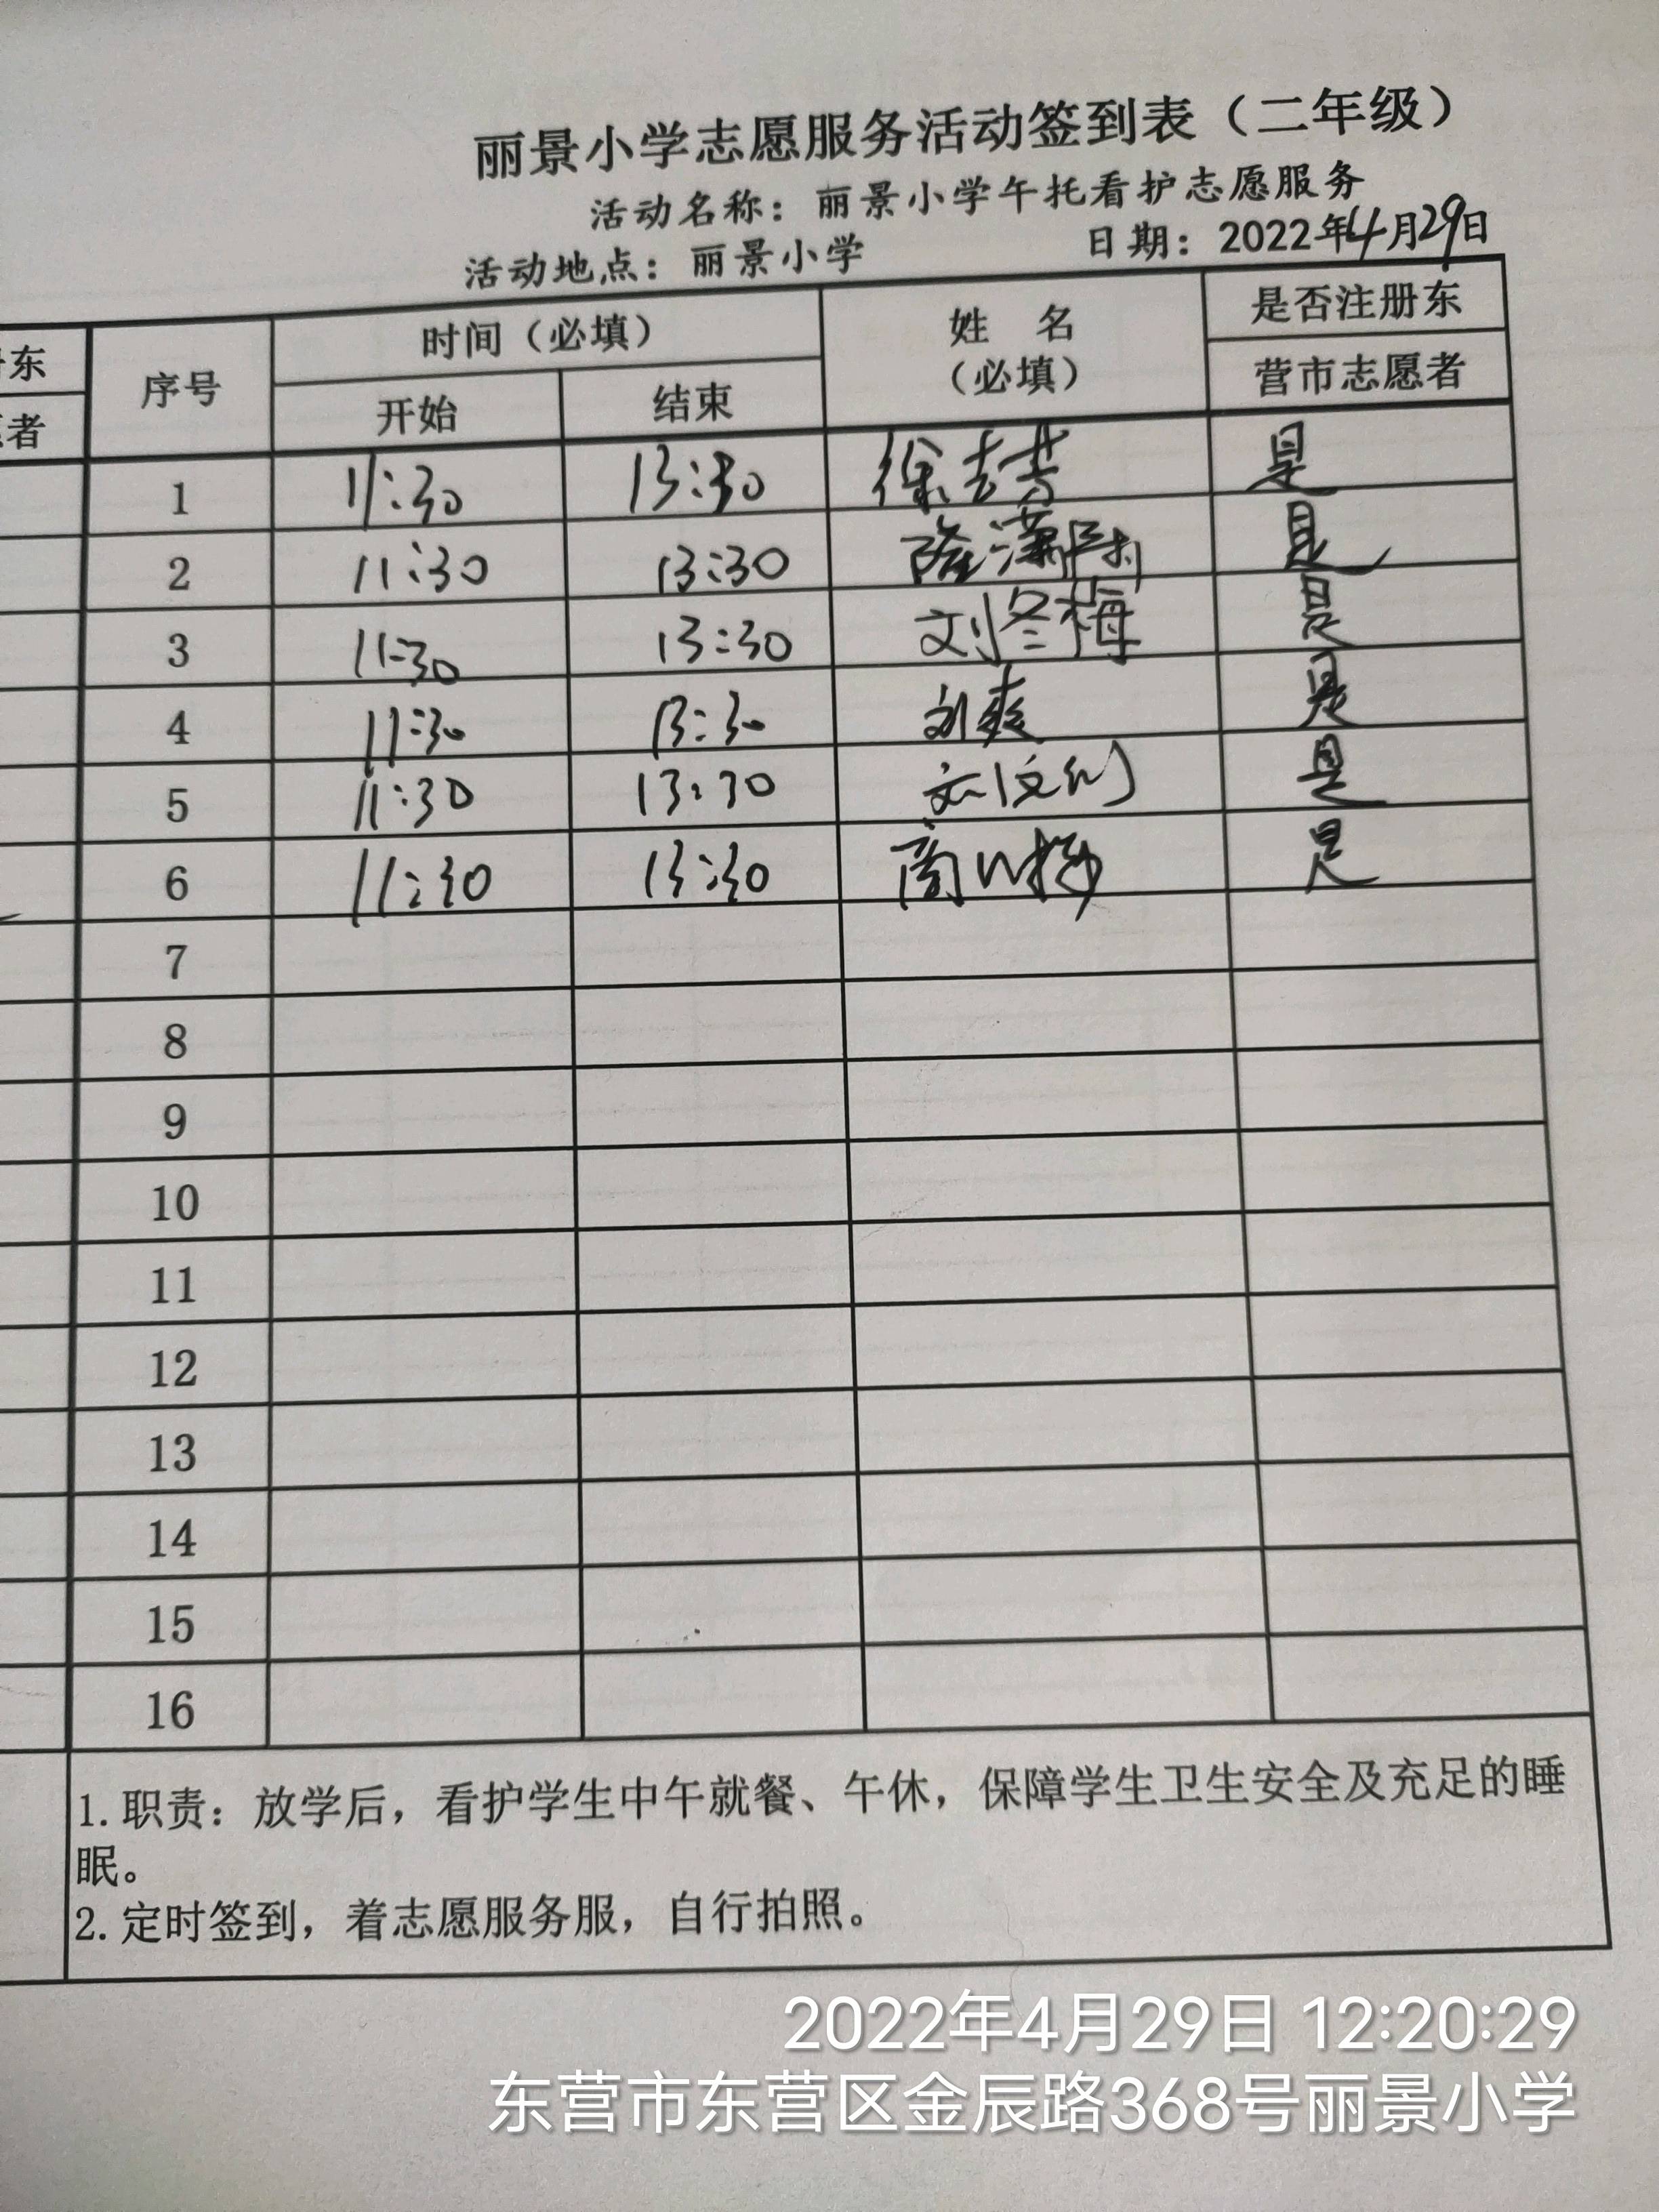 丽景小学志愿服务活动签到表（二年级）
活动名称：丽景小学午托看护志愿服务
活动地点：丽景小学 日期：2022年4月29日
册东
愿者
序号 时间（必填） 姓 名 是否注册东
开始 结束 （必填） 营市志愿者
1 11:30 13:30 徐 是
2 11:30 13:30 隆潇 是
3 11:30 13:30 刘冬梅 是
4 11:30 13:30 刘爽 是
5 11:30 13:30 刘 是
6 11:30 13:30 商 梅 是
7
8
9
10
11
12
13
14
15
16
1.职责：放学后，看护学生中午就餐、午休，保障学生卫生安全及充足的睡
眠。
2.定时签到，着志愿服务服，自行拍照。
2022年4月29日 12:20:29
东营市东营区金辰路368号丽景小学